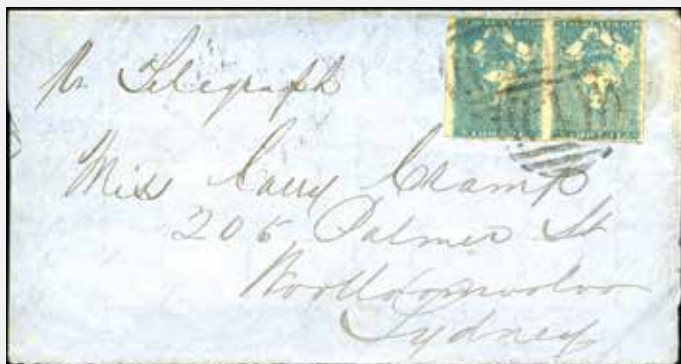 pr Telegraph
Miss Carry Cramp
205 Palmer St
Woolloomooloo
Sydney